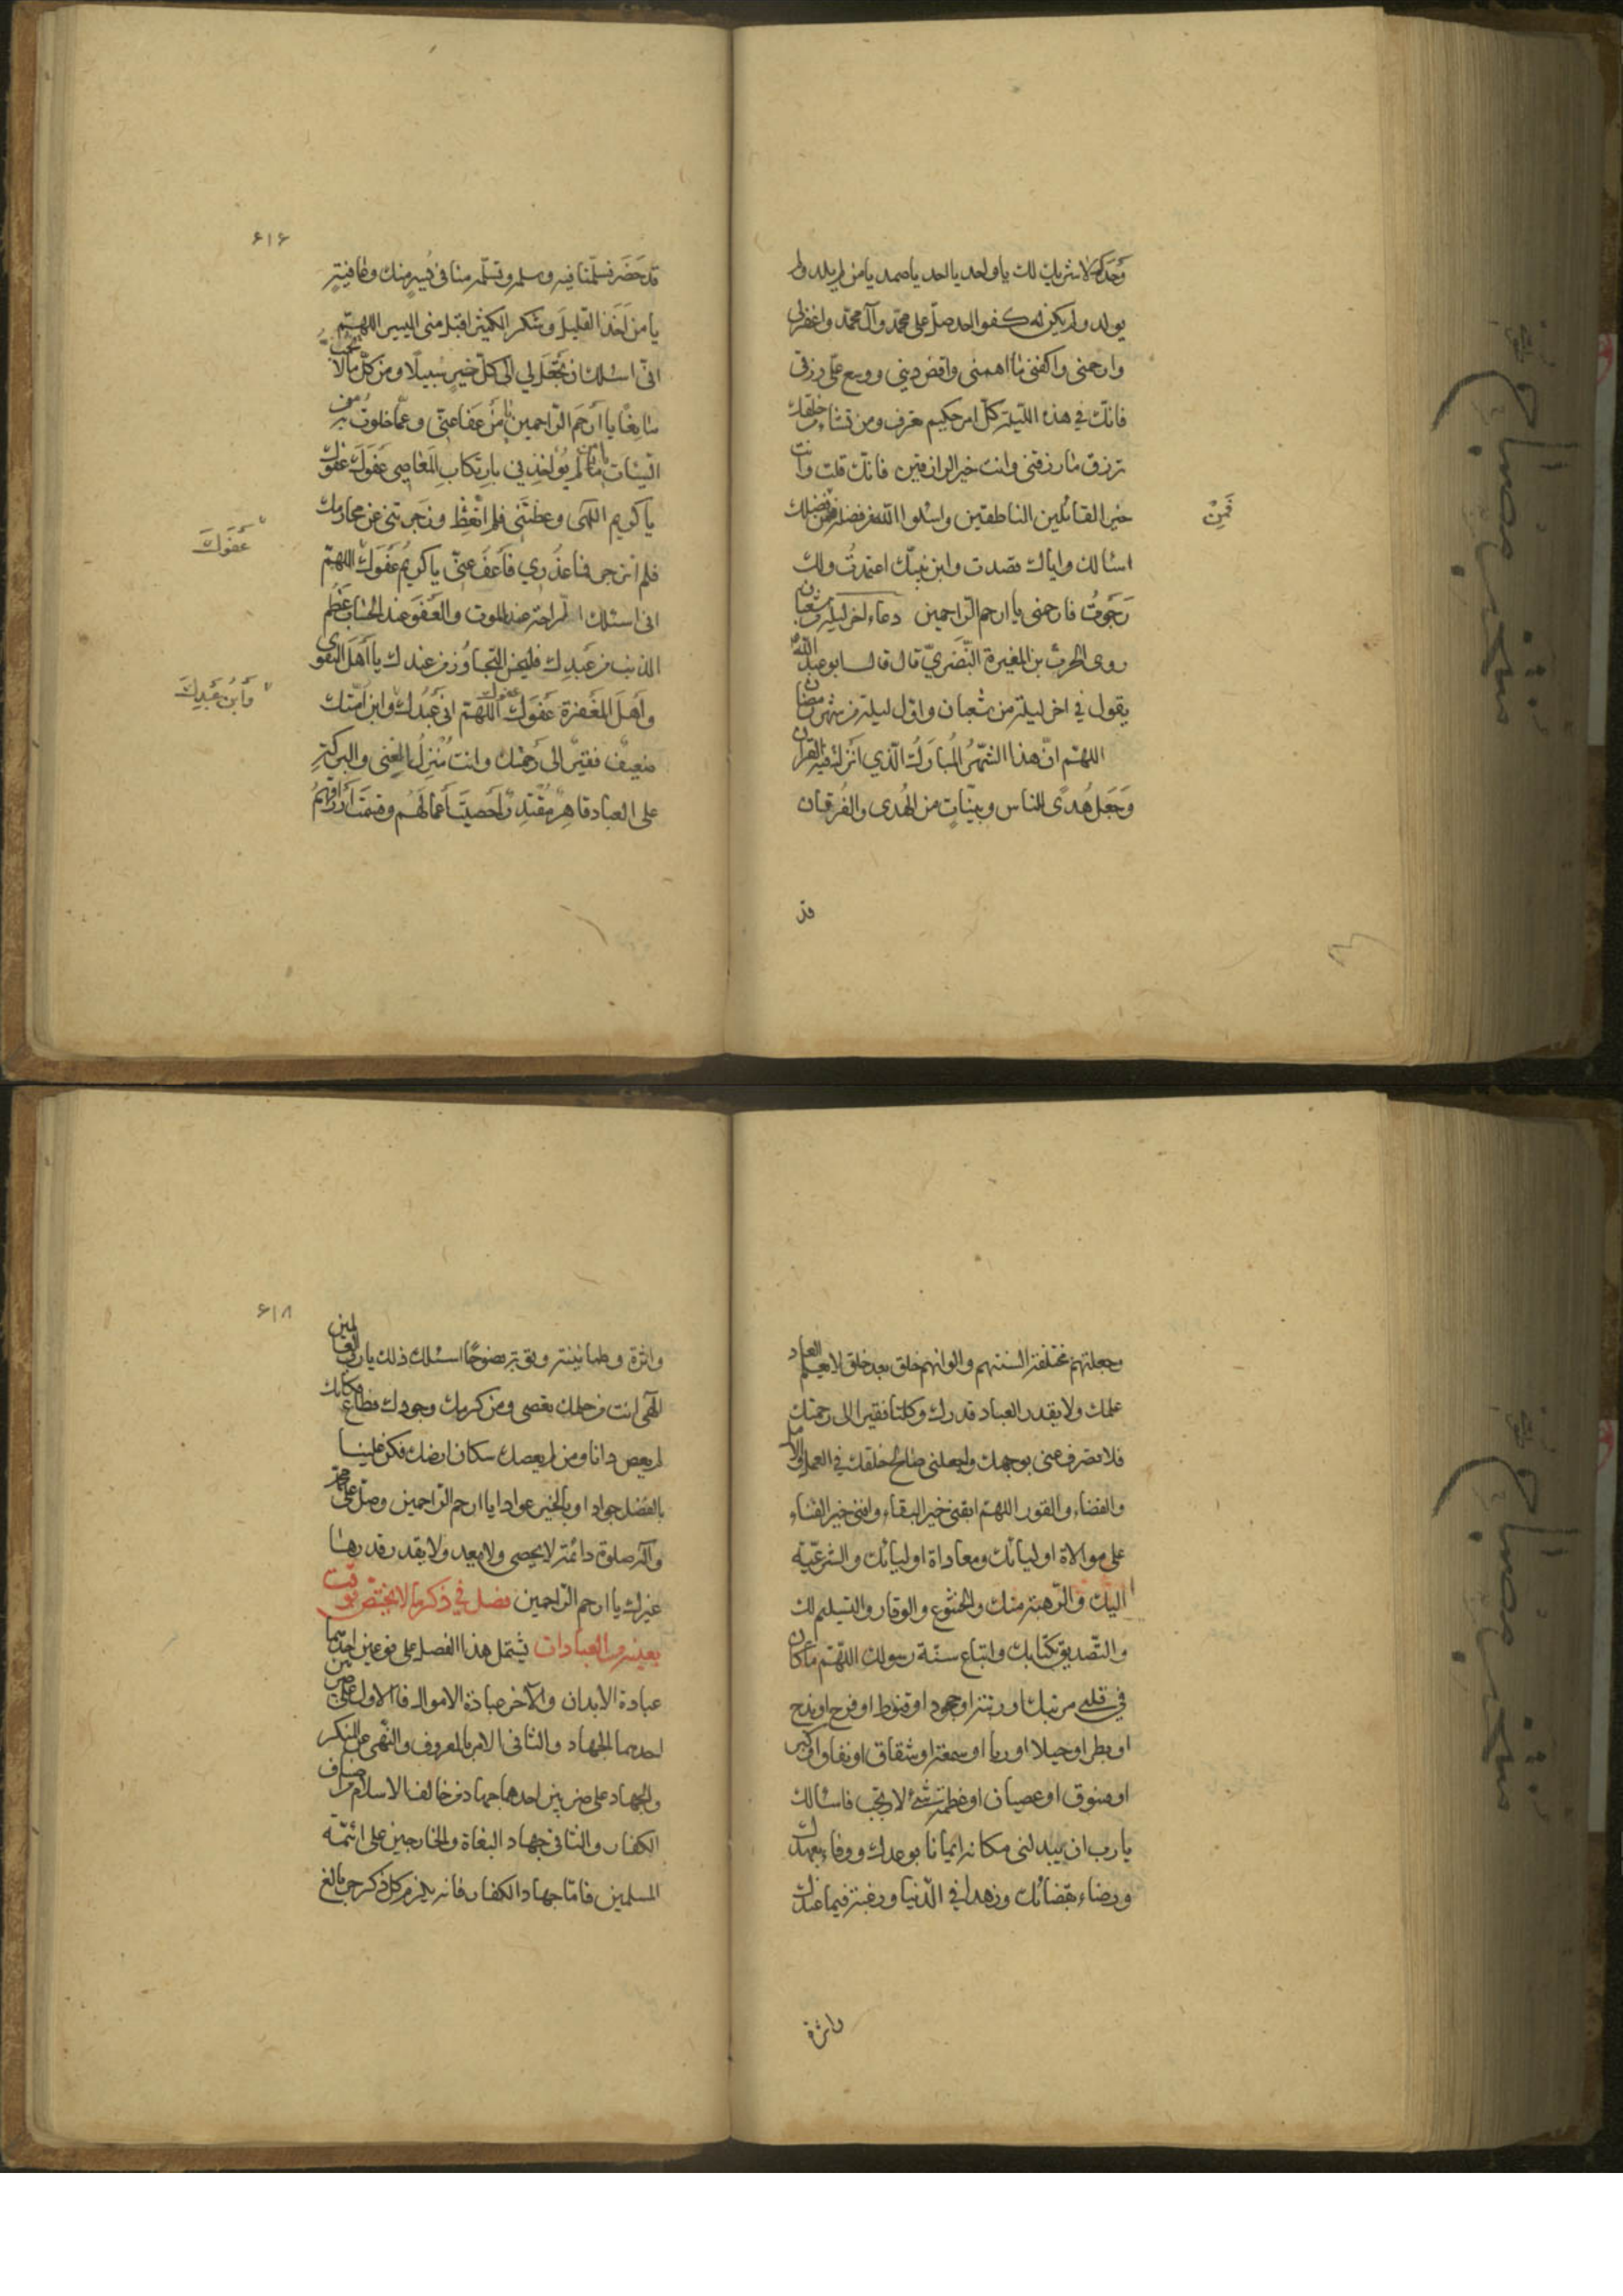 وَحْدَكَ لا شريك لك يا واحد يا احد يا صمد يا من لم يلد ولم
يولد ولم يكن له كفوا احد صلّ على محمّد وآل محمّد واغفر لي
وارحمني واكفني ما اهمني واقض ديني ووسع علي رزقي
فانّك في هذه اللّيلة كلّ امر حكيم تفرق ومن تشاء من خلقك
ترزق فارزقني وانت خير الرازقين فانّك قلت وانت
خير القائلين الناطقين واسئلوا الله من فضله فمن فضلك
فَمِنْ
اسئالك واياك قصدت وابن نبيّك اعتمدتُ ولك
رَجَوتُ فارحمني يا ارحم الرّاحمين دعاء اخر ليلة من شعبان
روى الحرث بن المغيرة النَّضَريّ قال قال كان ابو عبد اللهؑ
يقول في اخر ليلة من شعبان واوّل ليلة من شهر رمضان
اللهّم انّ هذا الشّهرُ المُبارَكُ الّذي انزلتَ فيه القران
وَجَعَل هُدىً للناس وبيّناتٍ من الهُدى والفُرقان
قد
۶۱۶
قد حَضَر فسلّمنا فيه وسلمه وتسلّمه منا في يُسرٍ منك وعافيةٍ
يا من اَخَذَ القليلَ وشكر الكثير اقبل مني اليسير اللهّم
انّي اسئلك ان تجعَل لي الى كلّ خيرٍ سبيلًا ومن كلّ ما لا تحبّ
مانِعًا يا أرحَم الرّاحمين يا مَن عَفا عنّي وعمّا خلوتُ به من
السّيئات يا مَن لم يُؤاخِذني بارتكابِ المَعاصي عَفوَك عفوك
يا كريم الٰهي وعظتَني فلم اتّعِظ وزجرتني عن محارمك
عَفَوَكَ
فلم انزجر فما عُذري فاَعفُ عنّي يا كريمُ عَفوَكَ اللهمّ
انّي اسئلك الرّاحة عند الموت والعَفوَ عند الحسابِ عَظُم
الذنب من عَبدِك فليحسن التّجاوُز من عندك يا أهلَ التقوى
واَهلَ المغفرة عَفوَك عفوك اللّهمّ اني عَبدُك وابن اَمَتك
وَابنُ عَبدِكَ
ضعيفٌ فقيرٌ الى رحمَتك وانت مُنزلُ الغِنى والبركةِ
على العباد قاهِرٌ مُقتدِرٌ اَحصيتَ أعمالَهُم وقسمتَ أرزاقهمُ
وجعلتهم مختلفة السنتهم والوانهم خلق بعد خلق لا يعلم العباد
علمك ولا يقدر العباد قدرك وكلنا فقير الى رحمتك
فلا تصرف عني بوجهك واجعلني من صالح خلقك في العمل والامل
والقضاء والقدر اللهمّ ابقني خير البقاء وافنني خير الفناء
على موالاة اوليائك ومعاداة اوليائك والشرغبّة
اليك والرّهبة منك والخشوع والوقار والتسليم لك
والتّصديق بكتابك واتباع سنّة رسولك اللهّم ما كان
في قلبي من شك او ريبة او جحود او قنوط او فرح او بذح
او بطر او خيلا او ريا او سمعة او شقاق او نفاق او كبر
او فسوق او عصيان او عظمة او شئ لا تحب فاسئالك
يا رب ان تبدلني مكانه ايمانا بوعدك ووفاء بعهدك
ورضاء بقضائك وزهدا في الدّنيا ورغبة فيما عندك
واثرة
۶۱۸
واثرة وطمانينة وتوبة نصوحًا اسئلك ذلك يا رب العالمين
الٰهي انت من حلمك تعصى ومن كرمك وجودك تطاع فكانك
لم يعص وانا ومن لم يعصك سكان ارضك فكن علينا
بالفضل جوادا وبالخير عوادا يا ارحم الراحمين وصل على محمد
وآله صلوة دائمة لا يحصى ولا يعد ولا يقدر قدرها
غيرك يا ارحم الرّاحمين فصل في ذكر ما لا يختصّ بوقت
بعينه من العبادات يشتمل هذا الفصل على نوعين احدهما
عبادة الابدان والآخر عبادة الاموال فالاول على ضربين
احدهما الجهاد والثاني الامر بالمعروف والنّهي عن المنكر
والجهاد على ضربين احدهما جهاد من خالف الاسلام من اصناف
الكفار والثاني جهاد البغاة والخارجين على ائمّة
المسلمين فامّا جهاد الكفار فانه يلزم كل ذكر حر بالغ